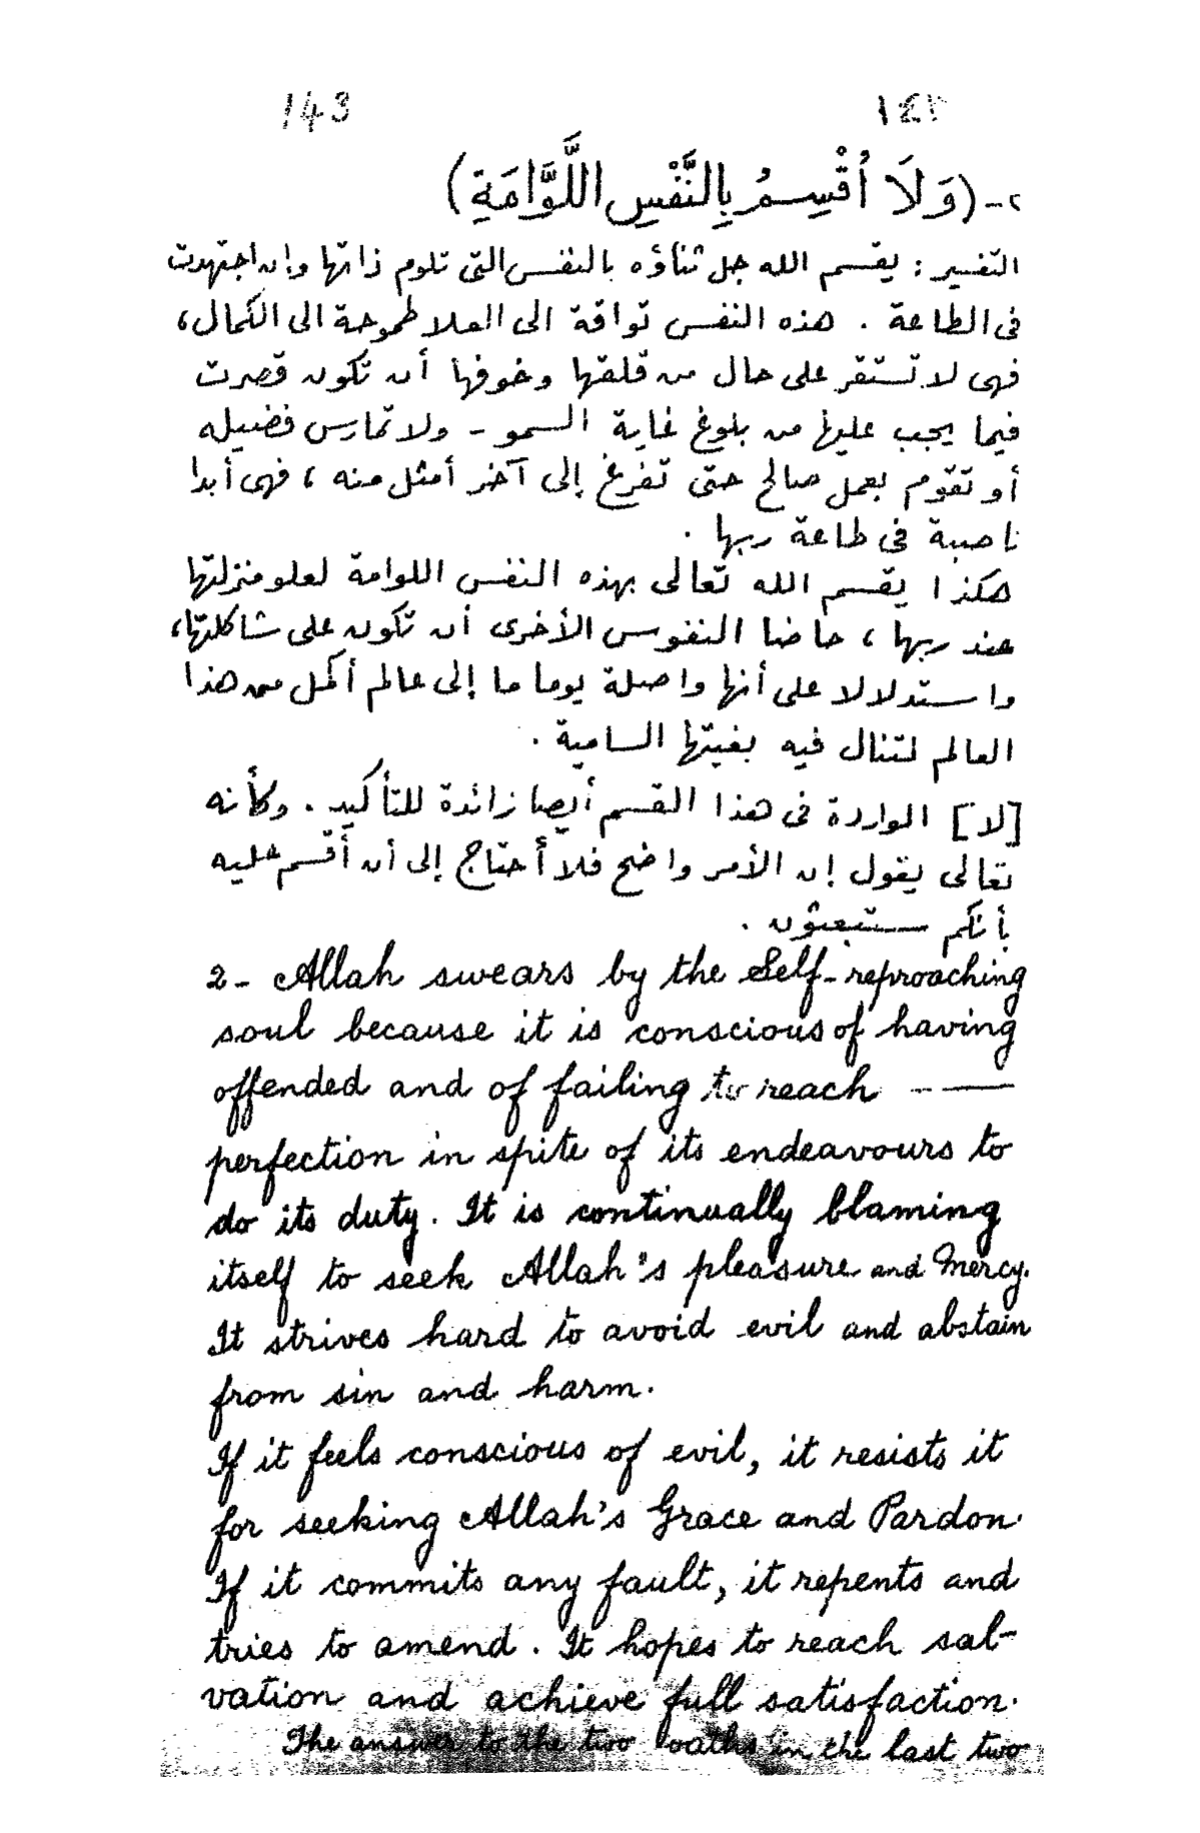 143 ١٤٣
٢- (وَلَا أُقْسِمُ بِالنَّفْسِ اللَّوَّامَةِ)
التفسير : يقسم الله جل ثناؤه بالنفس التى تلوم ذاتها وإن اجتهدت
فى الطاعة . هذه النفس تواقة الى العلا طموحة الى الكمال،
فهى لا تستقر على حال من قلقها وخوفها أن تكون قصرت
فيما يجب عليها من بلوغ غاية السمو - ولا تمارس فضيله
أو تقوم بعمل صالح حتى تفرغ إلى آخر أمثل منه ، فهى أبدا
ناصبة فى طاعة ربها .
هكذا يقسم الله تعالى بهذه النفس اللوامة لعلو منزلتها
عند ربها ، حاضا النفوس الأخرى أن تكون على شاكلتها،
واستدلالا على أنها واصلة يوما ما إلى عالم أكمل من هذا
العالم لتنال فيه بغيتها السامية .
[لا] الواردة فى هذا القسم أيضا زائدة للتأكيد . وكأنه
تعالى يقول إن الأمر واضح فلا أحتاج إلى أن أقسم عليه
بأنكم ستبعثون .
2- Allah swears by the Self-reproaching
soul because it is conscious of having
offended and of failing to reach -—
perfection in spite of its endeavours to
do its duty. It is continually blaming
itself to seek Allah's pleasure and Mercy.
It strives hard to avoid evil and abstain
from sin and harm.
If it feels conscious of evil, it resists it
for seeking Allah's Grace and Pardon.
If it commits any fault, it repents and
tries to amend. It hopes to reach sal-
vation and achieve full satisfaction.
The answer to the two oaths in the last two